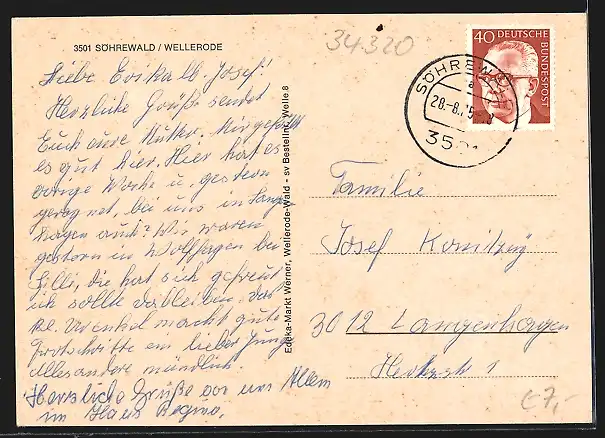 3501 SÖHREWALD / WELLERODE
34.320
Liebe Erika u. Josef!
Herzliche Grüße sendet
Euch eure Mutter. Mir gefällt
es gut hier. Hier hat es
vorige Woche u. gestern
geregnet, bei uns in Langen-
hagen auch? Wir waren
gestern in Wolfhagen bei
Lilli, die hat sich gefreut
ich sollte dableiben, das
kl. Urenkel macht gute
Fortschritte ein lieber Junge
alles andere mündlich.
Herzliche Grüße von uns Allen
im Haus Regina.
Edeka-Markt Werner, Wellerode-Wald - sv Bestellnr. Welle.8
SÖHREWALD
a
28.-8.75
3501
40 DEUTSCHE
BUNDESPOST
Familie
Josef
3012 Langenhagen
1
€7,-